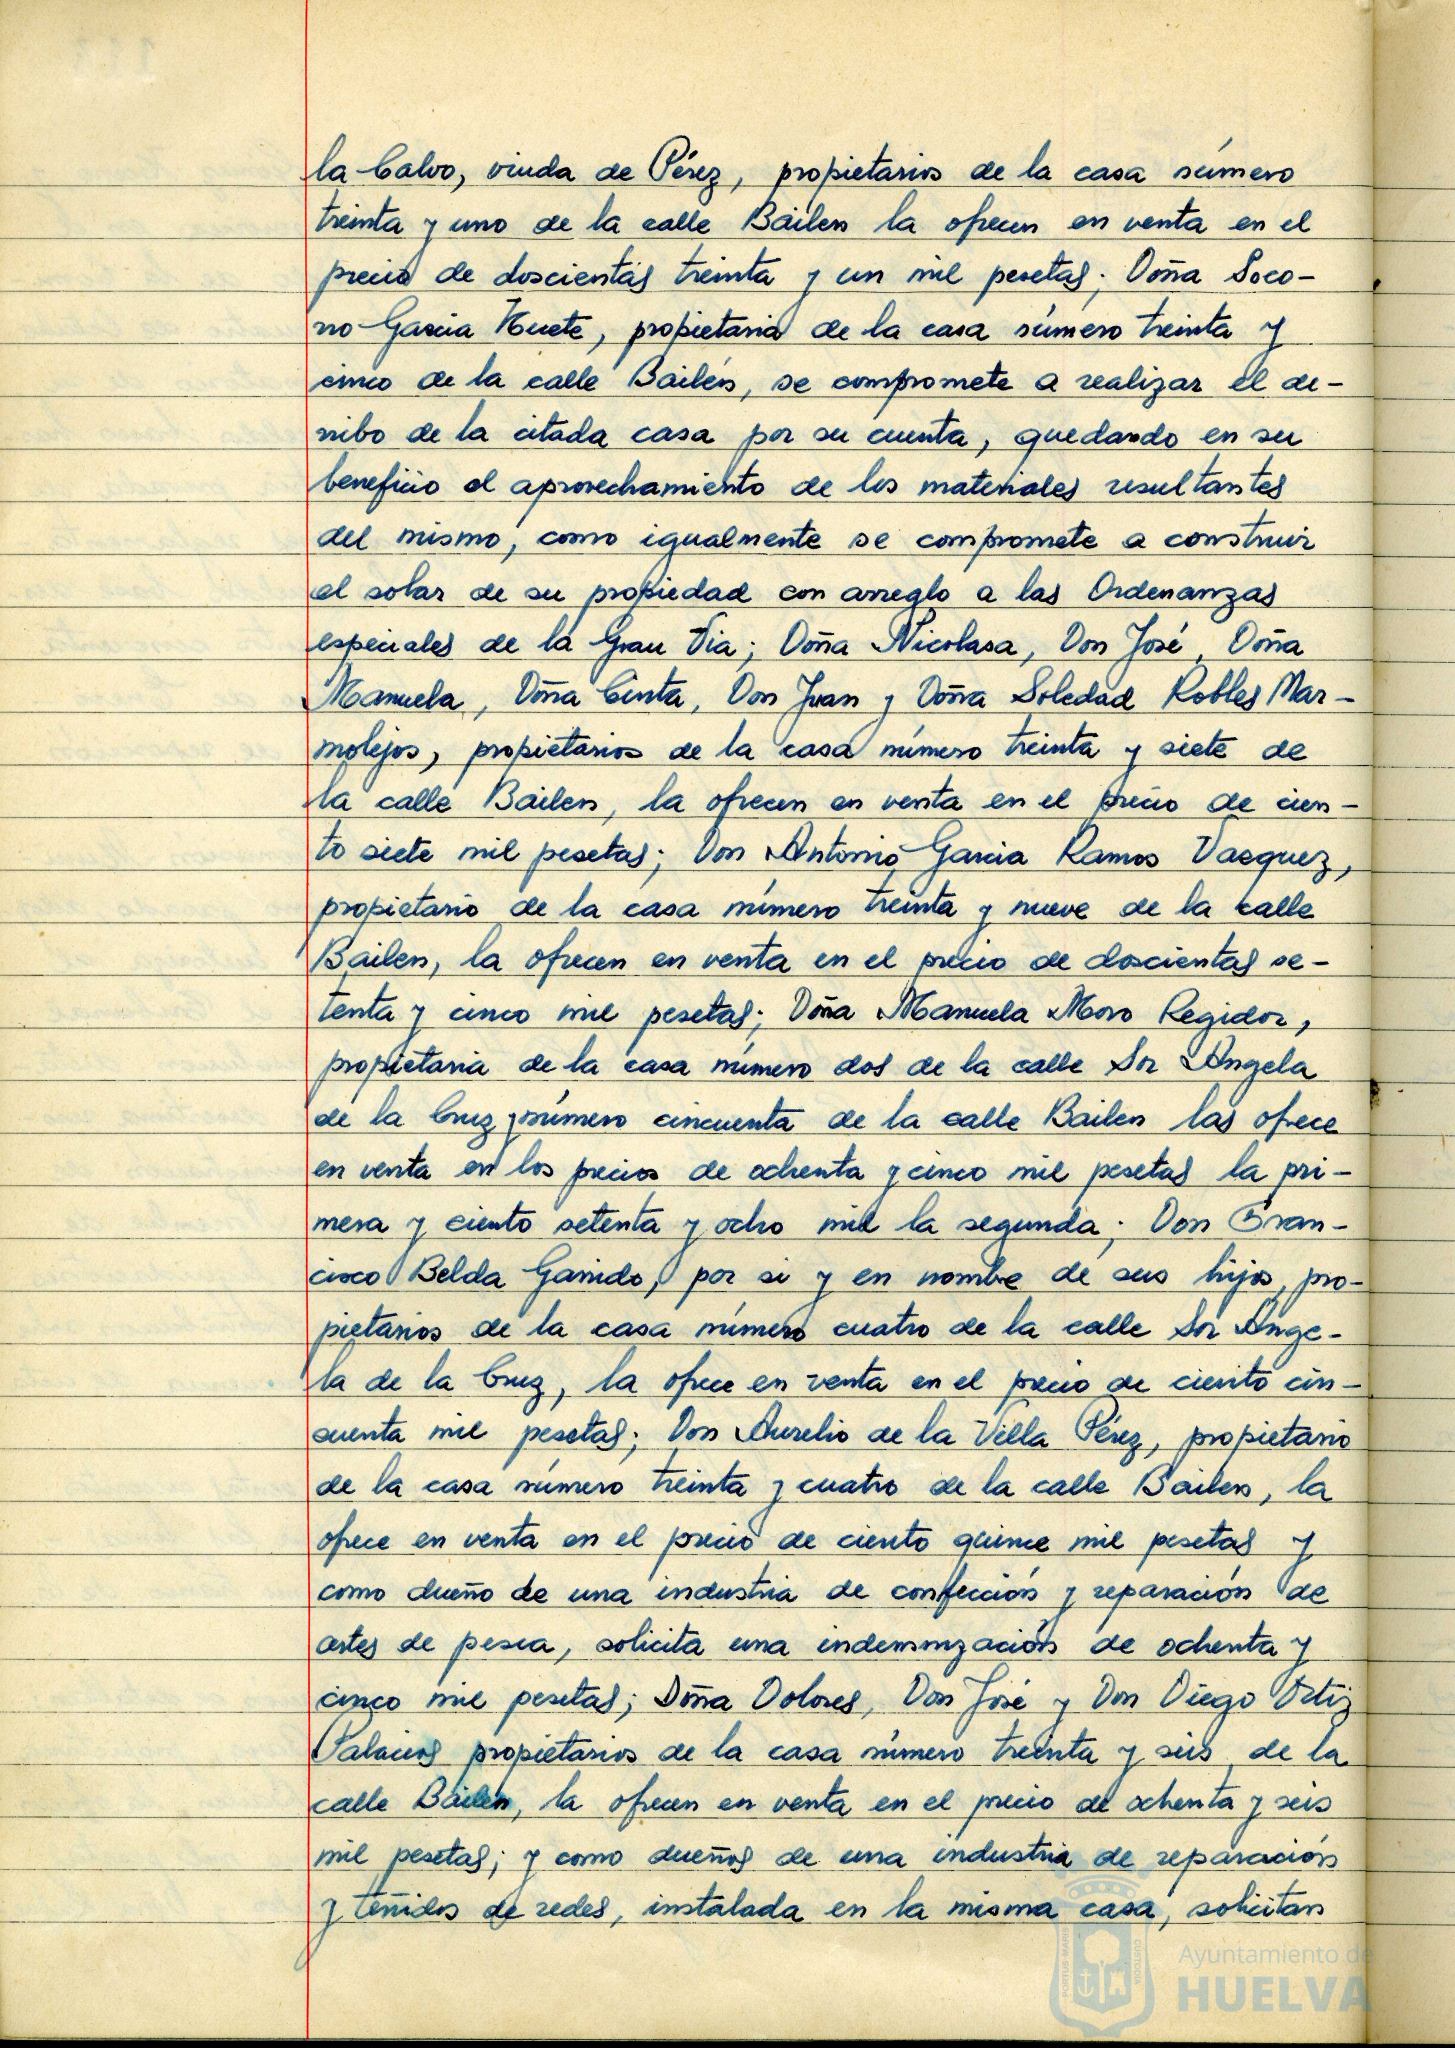 la Calvo, viuda de Pérez, propietarios de la casa número
treinta y uno de la calle Bailen la ofrecen en venta en el
precio de doscientas treinta y un mil pesetas; Doña Soco-
rro Garcia Huete, propietaria de la casa número treinta y
cinco de la calle Bailén, se compromete a realizar el de-
rribo de la citada casa por su cuenta, quedando en su
beneficio el aprovechamiento de los materiales resultantes
del mismo, como igualmente se compromete a construir
el solar de su propiedad con arreglo a las Ordenanzas
especiales de la Gran Via; Doña Nicolasa, Don José, Doña
Manuela, Doña Cinta, Don Juan y Doña Soledad Robles Mar-
molejos, propietarios de la casa número treinta y siete de
la calle Bailen, la ofrecen en venta en el precio de cien-
to siete mil pesetas; Don Antonio Garcia Ramos Vazquez,
propietario de la casa número treinta y nueve de la calle
Bailen, la ofrecen en venta en el precio de doscientas se-
tenta y cinco mil pesetas; Doña Manuela Moro Regidor,
propietaria de la casa número dos de la calle Sor Angela
de la Cruz y número cincuenta de la calle Bailen las ofrece
en venta en los precios de ochenta y cinco mil pesetas la pri-
mera y ciento setenta y ocho mil la segunda; Don Fran-
cisco Belda Garrido, por si y en nombre de sus hijos, pro-
pietarios de la casa número cuatro de la calle Sor Ange-
la de la Cruz, la ofrece en venta en el precio de ciento cin-
cuenta mil pesetas; Don Aurelio de la Villa Pérez, propietario
de la casa número treinta y cuatro de la calle Bailen, la
ofrece en venta en el precio de ciento quince mil pesetas y
como dueño de una industria de confección y reparación de
artes de pesca, solicita una indemnización de ochenta y
cinco mil pesetas; Doña Dolores, Don José y Don Diego Ortiz
Palacios propietarios de la casa número treinta y seis de la
calle Bailen, la ofrecen en venta en el precio de ochenta y seis
mil pesetas; y como dueños de una industria de reparación
y teñidos de redes, instalada en la misma casa, solicitan
Ayuntamiento de
HUELVA
PORTUS MARIS
CUSTODIA